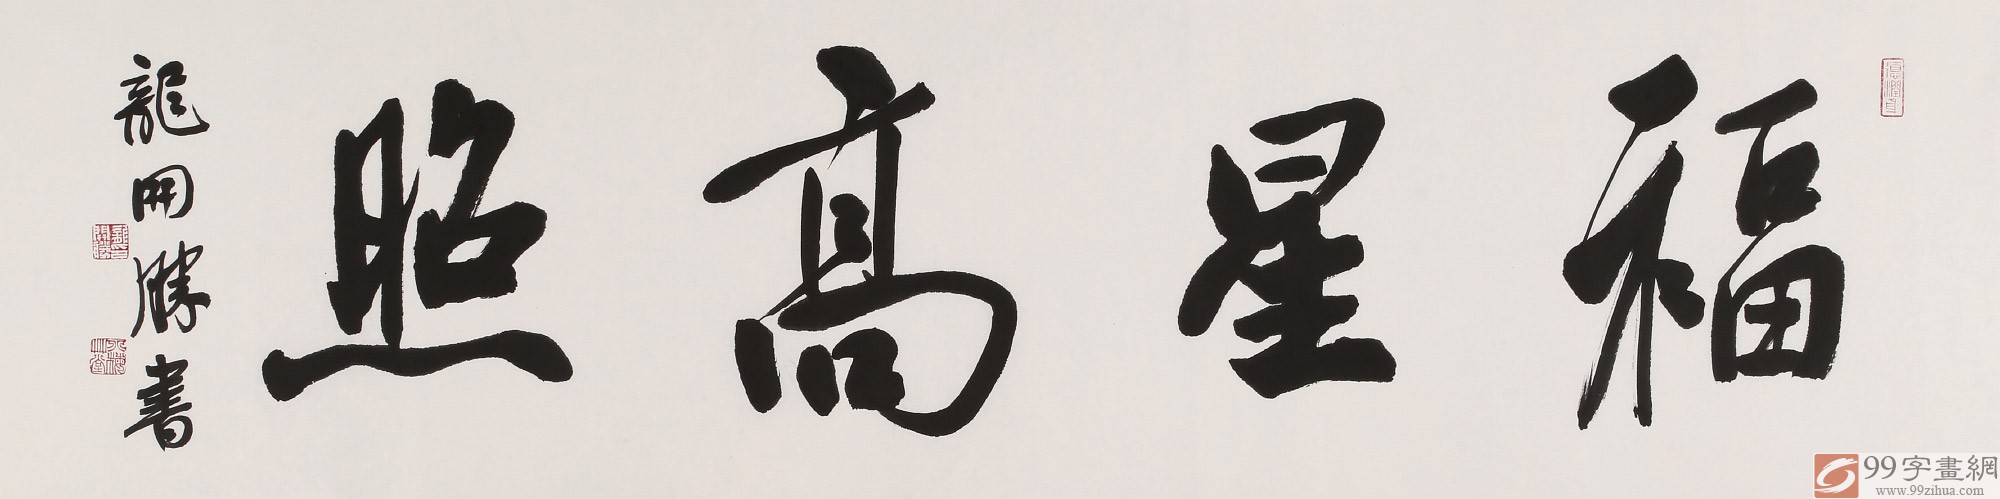 福星高照
龍開勝書
99字畫網
www.99zihua.com